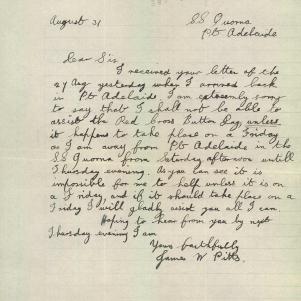 August 31
SS Quorna
Pt Adelaide
Dear Sir
I received your letter of the
27 Aug yesterday when I arrived back
in Pt Adelaide. I am extremely sorry
to say that I shall not be able to
assist the Red Cross Button Day unless
it happens to take place on a Friday
as I am away from Pt Adelaide in the
SS Quorna from Saturday afternoon untill
Thursday evening. As you can see it is
impossible for me to help unless it is on
a Friday, and if it should take place on a
Friday I will gladly assist you all I can
Hoping to hear from you by next
Thursday evening I am
Yours faithfully
James W Pitts.